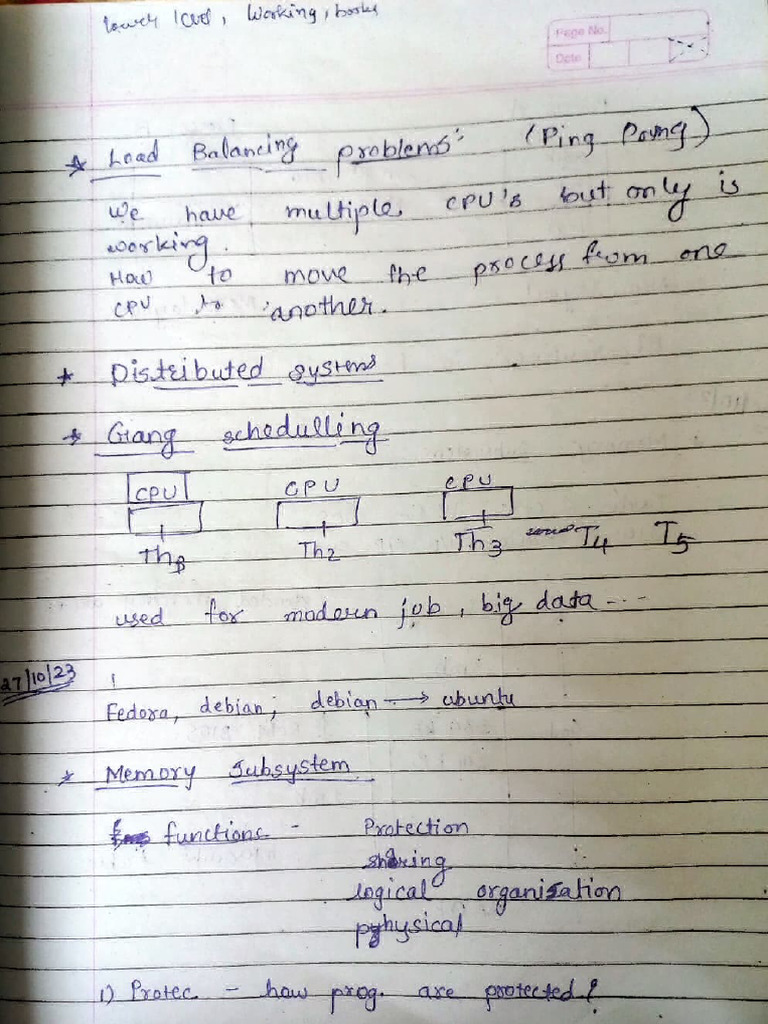 lower level, working, books
Page No.
Date
* Load Balancing problems: (Ping Poung)
we have multiple CPU's but only is
working.
How to move the process from one
CPU to another.
* Distributed systems
* Gang schedulling
CPU CPU CPU
Th Th2 Th3 T4 T5
used for modern job, big data ---
27/10/23
Fedora, debian, debian → ubuntu
* Memory Subsystem
functions - Protection
sharing
logical organisation
physical
1) Protec - how prog. are protected?